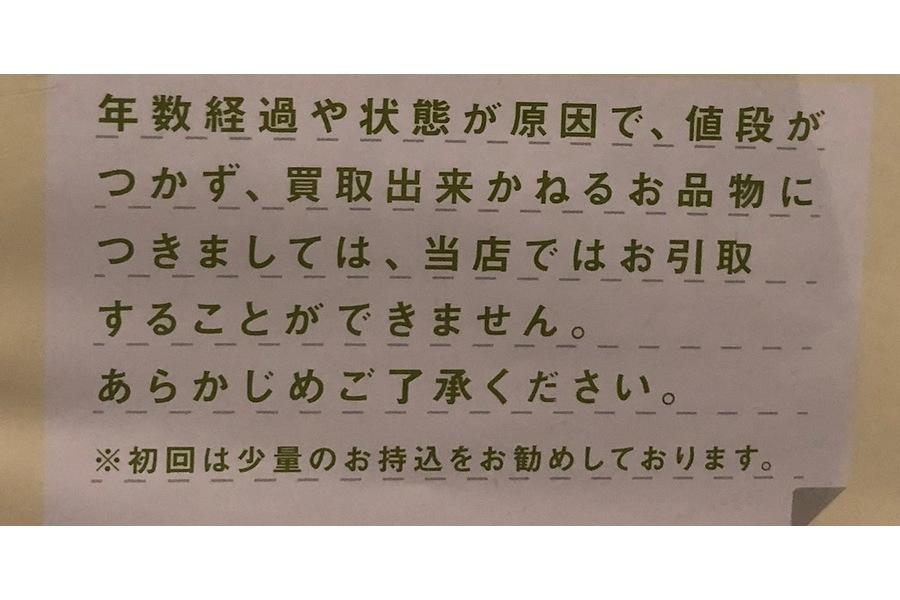 年数経過や状態が原因で、値段が
つかず、買取出来かねるお品物に
つきましては、当店ではお引取
することができません。
あらかじめご了承ください。
※初回は少量のお持込をお勧めしております。